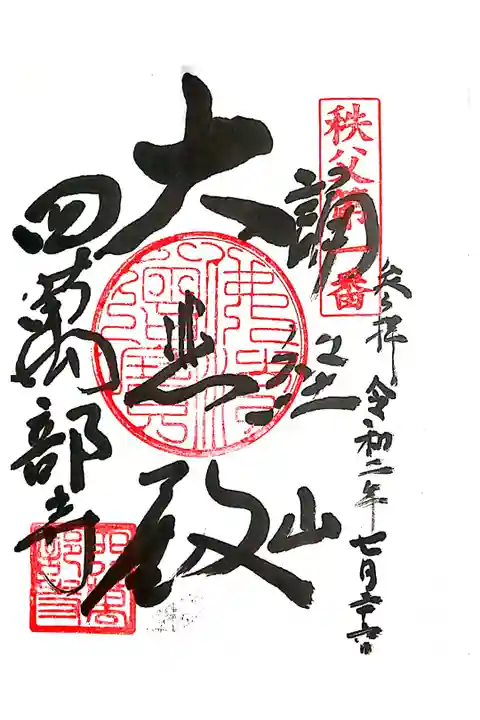 奉拝 令和二年七月二十六日
秩父第一番
誦経山
大悲殿
四萬部寺